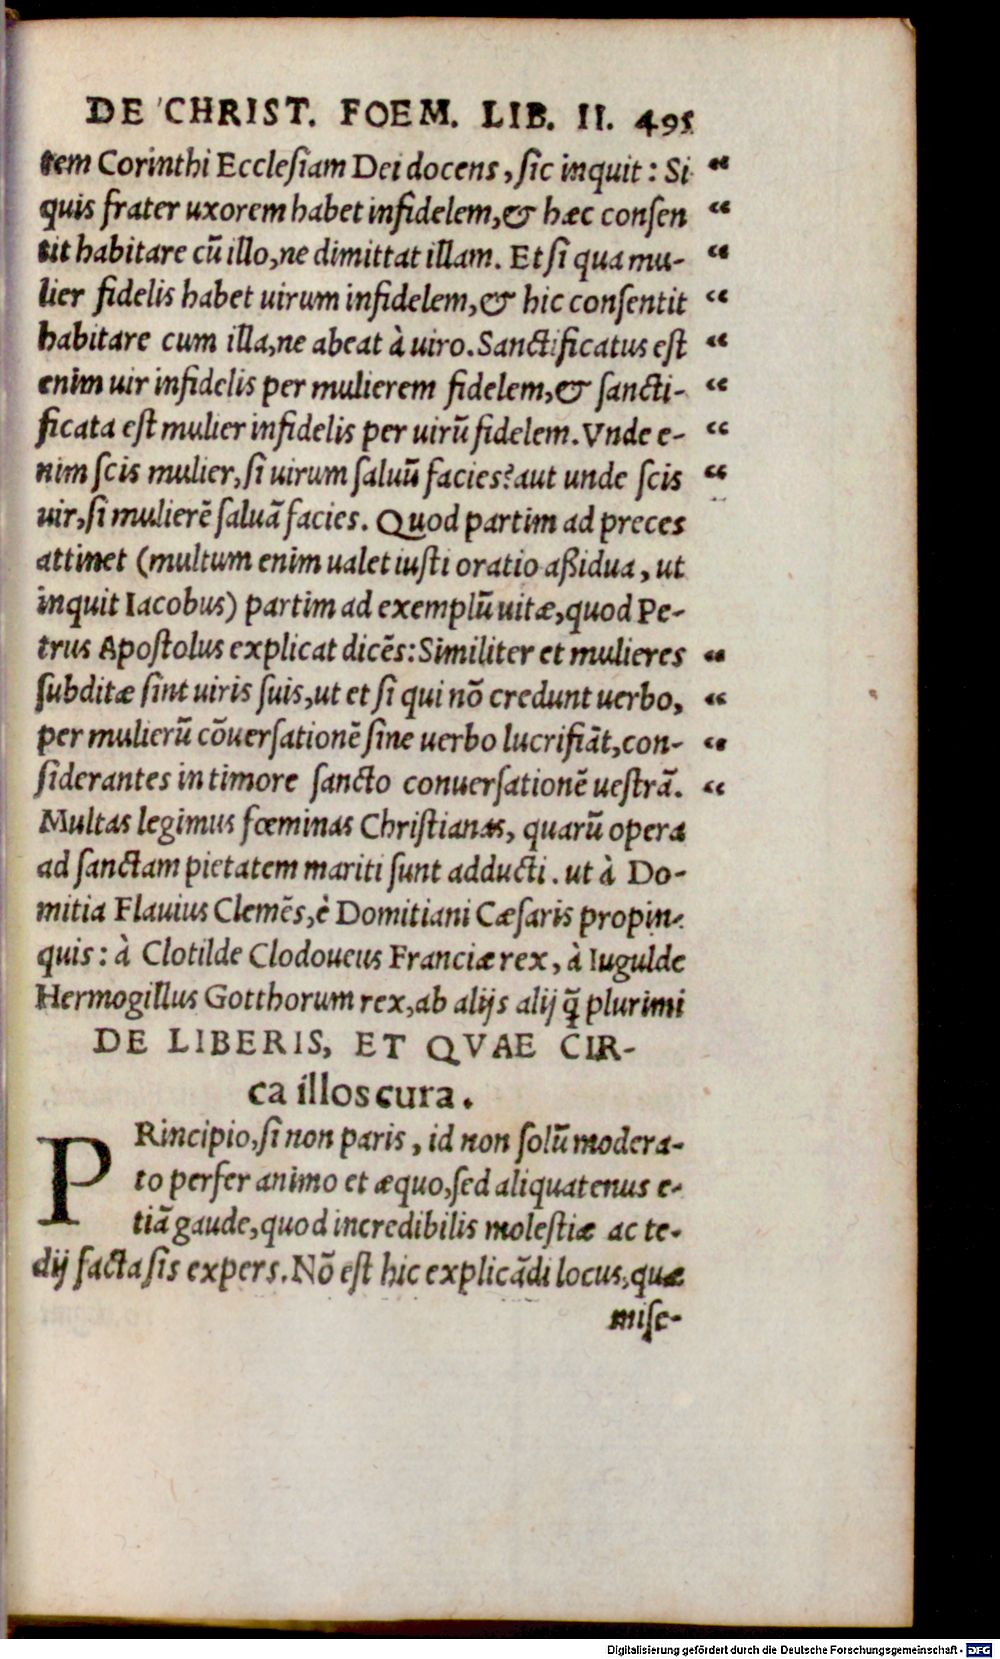 DE CHRIST. FOEM. LIB. II. 495
tem Corinthi Ecclesiam Dei docens, sic inquit: Si “
quis frater uxorem habet infidelem, & hæc consen “
tit habitare cū illo, ne dimittat illam. Et si qua mu- “
lier fidelis habet uirum infidelem, & hic consentit “
habitare cum illa, ne abeat à uiro. Sanctificatus est “
enim uir infidelis per mulierem fidelem, & sancti- “
ficata est mulier infidelis per uirū fidelem. Vnde e- “
nim scis mulier, si uirum saluū facies? aut unde scis “
uir, si mulierē saluā facies. Quod partim ad preces
attinet (multum enim ualet iusti oratio aßidua, ut
inquit Iacobus) partim ad exemplū uitæ, quod Pe-
trus Apostolus explicat dicēs: Similiter et mulieres “
subditæ sint uiris suis, ut et si qui nō credunt uerbo, “
per mulierū cōuersationē sine uerbo lucrifiāt, con- “
siderantes in timore sancto conuersationē uestrā. “
Multas legimus fœminas Christianas, quarū opera
ad sanctam pietatem mariti sunt adducti. ut à Do-
mitia Flauius Clemēs, è Domitiani Cæsaris propin-
quis: à Clotilde Clodoueus Franciæ rex, à Iugulde
Hermogillus Gotthorum rex, ab alijs alij q̃ plurimi
DE LIBERIS, ET QVAE CIR-
ca illos cura.
PRincipio, si non paris, id non solū modera-
to perfer animo et æquo, sed aliquatenus e-
tiā gaude, quod incredibilis molestiæ ac te-
dij facta sis expers. Nō est hic explicādi locus, quæ
mise-
Digitalisierung gefördert durch die Deutsche Forschungsgemeinschaft - DFG